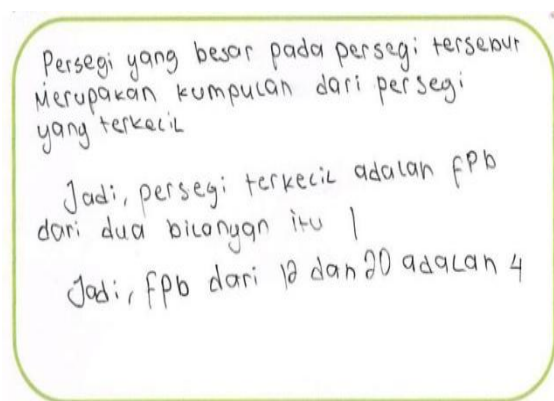 Persegi yang besar pada persegi tersebut
Merupakan kumpulan dari persegi
yang terkecil
Jadi, persegi terkecil adalah fpb
dari dua bilangan itu |
Jadi, fpb dari 12 dan 20 adalah 4